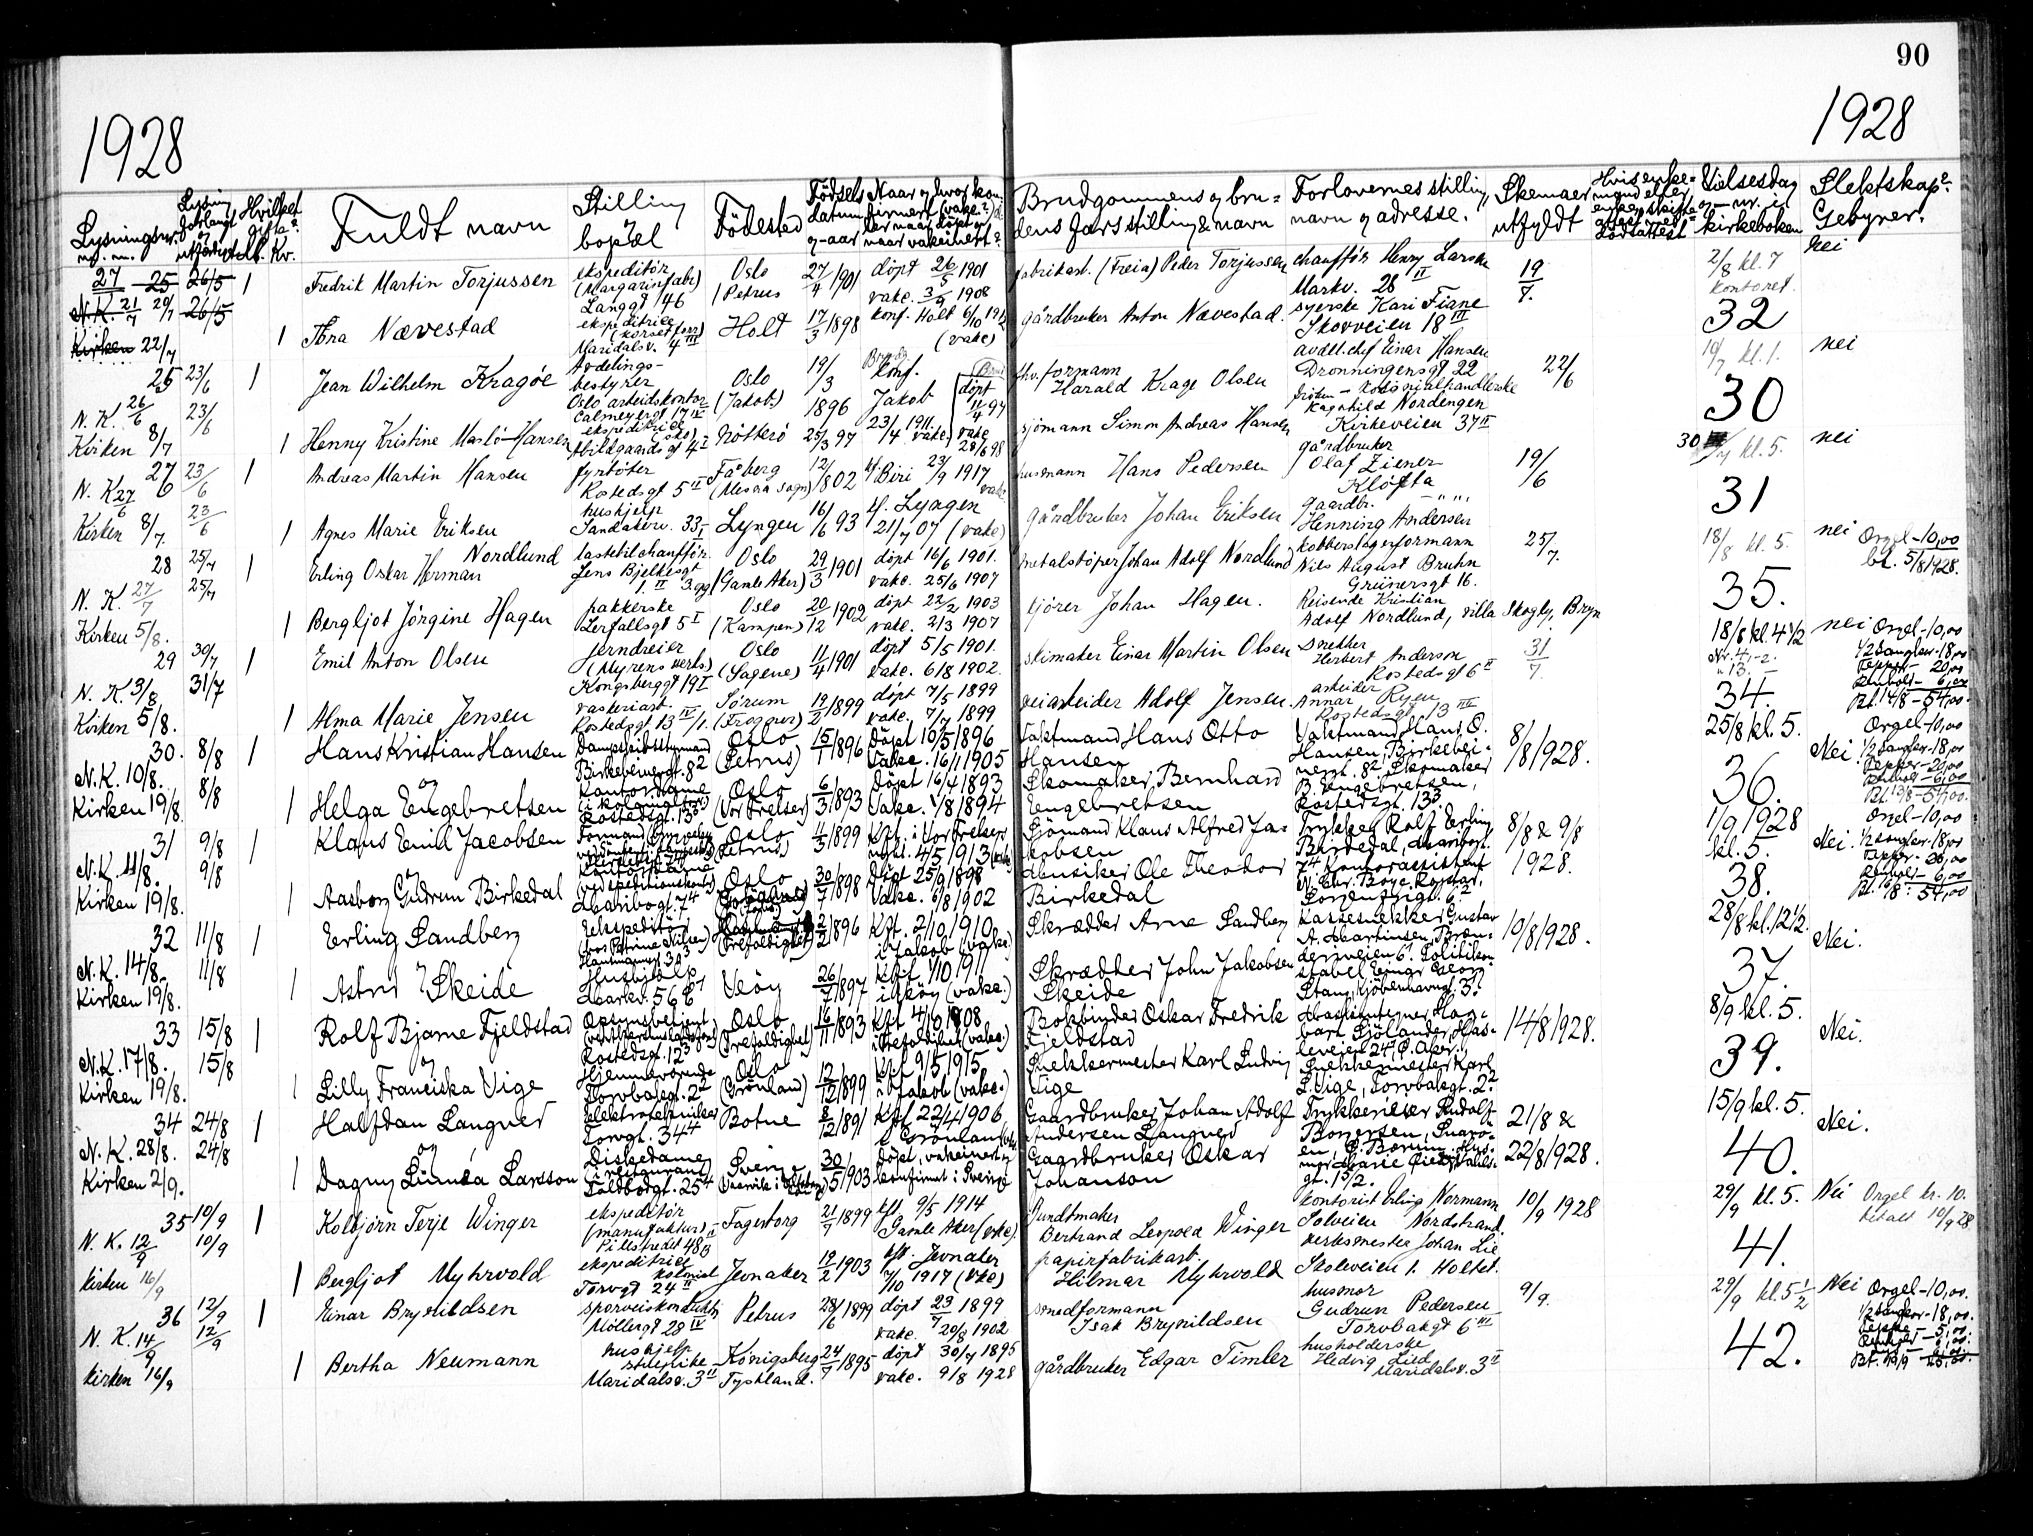 90
1928
1928
Fuldt navn
Stilling
bopæl
Fødested
Fødsels
datum
og -aar
Brudgommens og bru=
dens fars stilling & navn
Forlovernes stilling
navn og adresse.
Skemaer
utfyldt
Vielsesdag
og - nr. i
kirkeboken
Slektskap?
Gebyrer.
27 25 26/5 1 Fredrik Martin Torjussen
ekspeditør
(Margarinfabr)
Langgt 46
Oslo
(Petrus
27/4 1901
døpt 26/5 1901
vakc. 3/9 1908
fabrikarb. (Freia) Peder Torjussen
chauffør Henry Larsen
Markv. 28 II
19/7.
2/8 kl. 7
kontoret.
nei
N. K. 21/7 20/7 26/5
Kirken 22/7
1 Thra Nævestad
ekspeditrice
Maridalsv. 4 III
Holt
17/3 1898
konf. Holt 6/10 1912
(vakc)
gårdbruker Anton Nævestad.
syerske Kari Fiane
Skovveien 18 III
32
25 23/6 1 Jean Wilhelm Kragöe
Avdelings-
bestyrer
Oslo arbeidskontor
Calmeyergt 17 IV
Oslo
(Jakob)
19/3
1896
konf.
Jakob
23/4 1911
vakc.
fhv. formann
Harald Krage Olsen
avdel.chef Einar Hansen
Dronningensgt 22
22/6
19/7 kl. 1.
nei
N. K. 26/6 23/6
Kirken 8/7
1 Henny Kristine Masló-Hansen
ekspeditrice
(sko)
Abildgaards gt 4 I
Nötterö
25/3 97
døpt
11/4 97
vakc
28/6 98
sjömann Simon Andreas Hansen
frøken - kolonialhandlerske
Ragnhild Nordengen
Kirkeveien 37 II
30
27 23/6 1 Andreas Martin Hansen
fyrbøter
Rostedsgt 5 II
Faaberg
(Mesna sogn)
12/8 02
kf. Biri 23/9 1917
vakc.
husmann Hans Pedersen
gårdbruker
Olaf Ziener
Kløfta
19/6
kl. 5.
nei
N. K 27/6
Kirken 8/7 23/6
1 Agnes Marie Eriksen
hushjelp
Sandakerv. 33 I
Lyngen
16/6 93
kf. Lyngen
21/7 07 (vakc)
gårdbruker Johan Eriksen
Gaardbr.
Henning Andersen
31
28 25/7 1 Erling Oskar Herman Nordlund
lastebilchauffør
Jens Bjelkesgt
Oslo
(Gamle Aker)
29/3 1901
døpt 16/6 1901.
vakc. 25/6 1907
metalstøper Johan Adolf Nordlund
kobberslagerformann
Nils August Bruhn
Grünersgt 16.
25/7.
18/8 kl. 5.
nei Orgel - 10,00
bt. 5/8 1928.
N. K. 27/7 25/7
Kirken 5/8.
1 Bergljot Jörgine Hagen
pakkerske
Lerfallsgt 5 I
Oslo
(Kampen)
20/12 1902
døpt 22/2 1903
vakc. 2/3 1907
kjører Johan Hagen.
Reisende Kristian
Adolf Nordlund, villa Skogly, Bryn
35.
29 30/7 1 Emil Anton Olsen
jerndreier
(Myrens verks.)
Kongsberggt 19 I
Oslo
(Sagene)
11/4 1901
døpt 5/5 1901.
vakc. 6/8 1902.
skimaker Einar Martin Olsen
Snekker
Herbert Anderson
Rostedsgt 6 II
31/7.
18/8 kl 4 1/2
nei Orgel - 10,00
1/2 sangkor - 18,00
Tepper - 20,00
Renhold - 6,00
Bt. 14/8 - 54,00.
N. K 3/8 31/7
Kirken 5/8.
1 Alma Marie Jensen
vaskeriarb.
Rostedsgt 13 IV/1.
Sørum
(Frogner)
19/2 1899
døpt 7/5 1899
vakc. 7/7 1899
veiarbeider Adolf Jensen.
arbeider
Annar Ryen
Rostedsgt 13 III
34.
30. 8/8 1 Hans Kristian Hansen
Birkebeinergt. 8²
Oslo
(Petrus)
15/1 1896
Døpt 10/5 1896
Vakc. 16/1 1905
Vaktmand Hans Otto
Hansen
Vaktmand Hans O.
Hansen, Birkebei-
nergt. 8², Skomaker
8/8 1928.
25/8 kl. 5.
Nei. Orgel - 10,00
1/2 sangkor - 18,00
Tepper - 20,00
Renhold - 6,00
N. K. 10/8. 8/8
Kirken 19/8.
og
1 Helga Engebretsen
Kontordame
Rostedsgt. 13³
Oslo
(Vor Frelser)
6/3 1893
Døpt 16/4 1893
Vakc. 1/8 1894
Skomaker, Bernhard
Engebretsen
B. Engebretsen,
Rostedsgt. 13³.
36.
31 9/8 1 Klaus Emil Jacobsen
Oslo
(Petrus)
4/3 1899
Kft. i Vor Frelsers
4/5 1913
Sjömand Klaus Alfred Ja=
kobsen
Trykker Rolf Erling
Birkedal, Maribogt.
8/8 & 9/8
1928.
1/9 1928
kl. 5.
Nei. Orgel - 10,00
1/2 sangkor - 18,00
Tepper - 20,00
Renhold - 6,00
Bt. 16/8 : 54,00
N. K. 11/8. 9/8
Kirken 19/8.
og
1 Aasborg Gudrun Birkedal
Kontordame
Maribogt. 7⁴
Oslo
30/7 1898
Døpt 25/9 1898
Vakc. 6/8 1902
Musiker Ole Theodor
Birkedal
7⁴ Kontorassistent
Sorgenfrigt. 6²
38.
32 11/8 1 Erling Sandberg
Ekspeditør
(Trefoldighet)
2/2 1896
Kft. 2/10 1910
i Jakob (vakc.)
Skrædder Arne Sandberg
Kassesnekker Gustav
A. Martinsen, Bræn=
derivein 6¹. Politikon-
10/8 1928.
28/8 kl. 12 1/2.
Nei.
N. K. 14/8. 11/8
Kirken 19/8.
og
1 Astrid Skeide
Hushjælp
Markv. 56 C¹
Veöy
26/7 1897
Kft 1/10 1911
i Veöy (vakc.)
Skrædder John Jakobsen
Skeide
stabel Einar Georg
Stang, Kjöbenhavngt. 3.
37.
33 15/8 1 Rolf Bjarne Fjeldstad
Rostedsgt. 12³
Oslo
(Trefoldighet)
16/11 1893
Kft 4/6 1908
i Trefoldighet (vakc.)
Bokbinder Oskar Fredrik
Fjeldstad
14/8 1928.
8/9 kl. 5.
Nei.
N. K. 17/8. 15/8
Kirken 19/8.
og
1 Lilly Franciska Vige
Hjemmeværende
Torvbakgt. 2²
Oslo
(Grønland)
12/12 1899
Kft 9/5 1915
i Jakob (vakc.)
Snekkermester Karl Ludvig
Vige
Snekkermester Karl
L. Vige, Torvbakgt. 2².
39.
34 24/8 1 Halfdan Langved
Elektrotekniker
Torvgt. 34⁴
Botne
8/12 1891
Kft 22/4 1906
i Grønland
Gaardbruker Johan Adolf
Andersen Langved
Trykkerieier Rudolf
21/8 &
22/8 1928.
15/9 kl. 5.
Nei.
N. K. 28/8. 24/8
Kirken 2/9.
og
1 Dagny Linnéa Larsson
Diskedame
i restaurant
Toldbodgt. 25⁴
Sverige
30/5 1903
Døpt, vakcinert og
konfirmert i Sverige
Gaardbruker Oskar
Johanson
40.
35 10/9 1 Kolbjörn Terje Winger
ekspeditør
(manufaktur)
Pilestredet 48 B
Fagerborg
21/7 1899
kft. 9/5 1914
Gamle Aker (vakc).
Bundtmaker
Bertrand Leopold Winger
kontorist Erling Normann
Solveien Nordstrand
10/9 1928
29/9 kl. 5.
Nei Orgel kr. 10.
betalt 10/9 28
N. K. 12/9 10/9
kirken 16/9
1 Bergljot Myhrvold
ekspeditrice
kolonial
Torvgt 24 II
Jevnaker
19/2 1903
kft. Jevnaker
7/10 1917 (vkc)
papirfabrikarb.
Hilmar Myhrvold
verksmester Johan Lie
Skoleveien 1. Holtet.
41.
36 12/9 1 Einar Brynildsen
sporveiskonduktør
Möllergt 28 IV
Petrus
28/6 1899
døpt 23/7 1899
vakc. 20/8 1902
smedformann
Isak Brynildsen
husmor
Gudrun Pedersen
Torvbakgt 6 III
9/9.
29/9 kl. 5 1/2
Nei Orgel - 10,00.
1/2 sangkor - 18,00.
N. K. 14/9 12/9
kirken 16/9
1 Bertha Neumann
hushjelp
stuepike
Maridalsv. 3 II
Königsberg
Tyskland.
24/7 1895
døpt 30/7 1895
vakc. 9/8 1928
gårdbruker Edgar Timler
husholderske
Hedvig Lied
Maridalsv. 3 II
42.